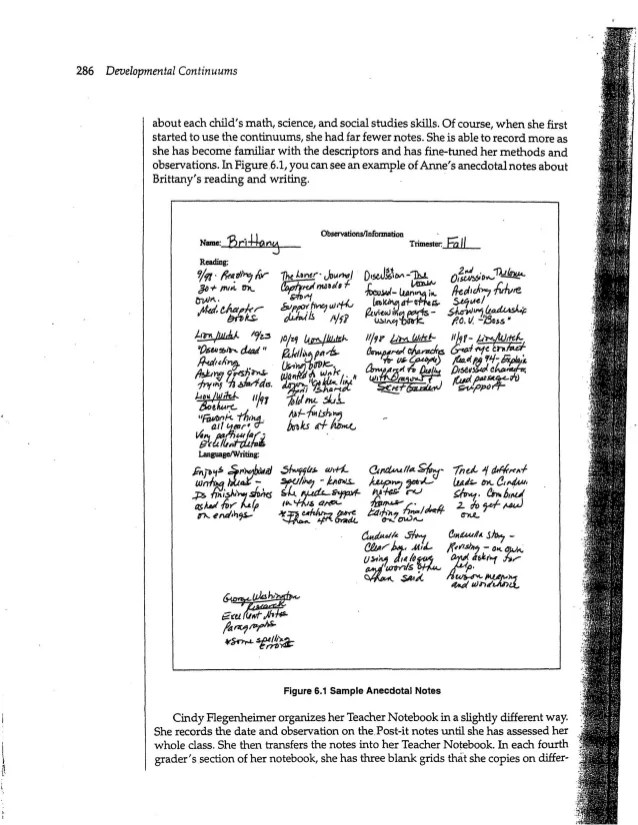 286 Developmental Continuums
about each child's math, science, and social studies skills. Of course, when she first
started to use the continuums, she had far fewer notes. She is able to record more as
she has become familiar with the descriptors and has fine-tuned her methods and
observations. In Figure 6.1, you can see an example of Anne's anecdotal notes about
Brittany's reading and writing.
Observations/Information
Name: Brittany Trimester: Fall
Reading:
9/98 · Reading for
30+ min on
own.
Med. chapter
books
The Loner · Journal
Captured moods +
story
Supporting with
details 11/98
Discussion - The
Loner
focused - leaning in
looking at others
Reviewing parts -
using book
2nd
Discussion The Loner
Predicting future
Sequel
Showing leadership
P.O.V. "Boss"
Lion/Witch 10/23
"Discussion dead"
Predicting
Asking questions
trying to start dis.
10/29 Lion/Witch
Retelling parts
Using book,
Told me she's
not finishing
books at home
11/98 Lion/Witch
Compared characters
to us (people)
Secret Garden
11/98 - Lion/Witch
Great eye contact
Read pg 94 - Explain
Discussed character
Read passage to
support
Lion/Witch 11/98
Brochure
"Favorite thing
all year"
Very particular;
Excellent details
Language/Writing:
Enjoys Springboard
writing ideas -
Is finishing stories
asked for help
on endings
Struggles with
spelling - knows
she needs support
in this area
Cinderella Story
keeping good
notes on
frames
Editing final draft
on own
Tried 4 different
leads on Cinder.
Story. Combined
2 to get new
one
Cinderella Story
Clear beg. mid.
using dialogue
and words other
than said
Cinderella Story -
Revising - on own
and asking for
help.
focus on meaning
and word choice
George Washington
Research
Excellent Notes
Paragraphs
*Some spelling
errors
Figure 6.1 Sample Anecdotal Notes
Cindy Flegenheimer organizes her Teacher Notebook in a slightly different way.
She records the date and observation on the Post-it notes until she has assessed her
whole class. She then transfers the notes into her Teacher Notebook. In each fourth
grader's section of her notebook, she has three blank grids that she copies on differ-